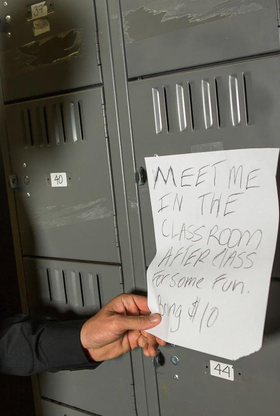 37
40
MEET ME
IN THE
CLASSROOM
AFTER CLASS
For Some Fun.
Bring $10
44